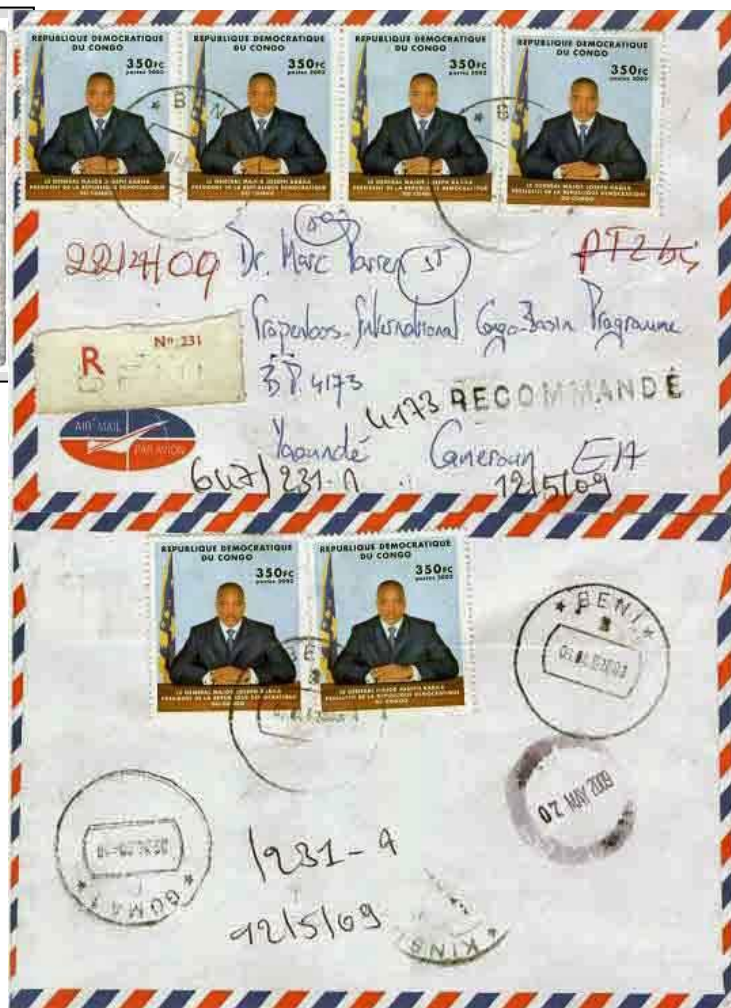 REPUBLIQUE DEMOCRATIQUE
DU CONGO
350FC
postes 2002
LE GENERAL MAJOR JOSEPH KABILA
PRESIDENT DE LA REPUBLIQUE DEMOCRATIQUE
DU CONGO
REPUBLIQUE DEMOCRATIQUE
DU CONGO
350FC
postes 2002
LE GENERAL MAJOR JOSEPH KABILA
PRESIDENT DE LA REPUBLIQUE DEMOCRATIQUE
DU CONGO
REPUBLIQUE DEMOCRATIQUE
DU CONGO
350FC
postes 2002
LE GENERAL MAJOR JOSEPH KABILA
PRESIDENT DE LA REPUBLIQUE DEMOCRATIQUE
DU CONGO
REPUBLIQUE DEMOCRATIQUE
DU CONGO
350FC
postes 2002
LE GENERAL MAJOR JOSEPH KABILA
PRESIDENT DE LA REPUBLIQUE DEMOCRATIQUE
DU CONGO
22/4/09
Dr. Marc Parren
Tropenbos-International Congo-Basin Programme
R Nº 231
B.P. 4173
4173 RECOMMANDÉ
AIR MAIL
PAR AVION
Yaoundé Cameroun
647/231-A
12/5/09
REPUBLIQUE DEMOCRATIQUE
DU CONGO
350FC
postes 2002
LE GENERAL MAJOR JOSEPH KABILA
PRESIDENT DE LA REPUBLIQUE DEMOCRATIQUE
DU CONGO
REPUBLIQUE DEMOCRATIQUE
DU CONGO
350FC
postes 2002
LE GENERAL MAJOR JOSEPH KABILA
PRESIDENT DE LA REPUBLIQUE DEMOCRATIQUE
DU CONGO
* BENI *
02 MAY 2009
* GOMA 1 *
/231-A
12/5/09
* KINS